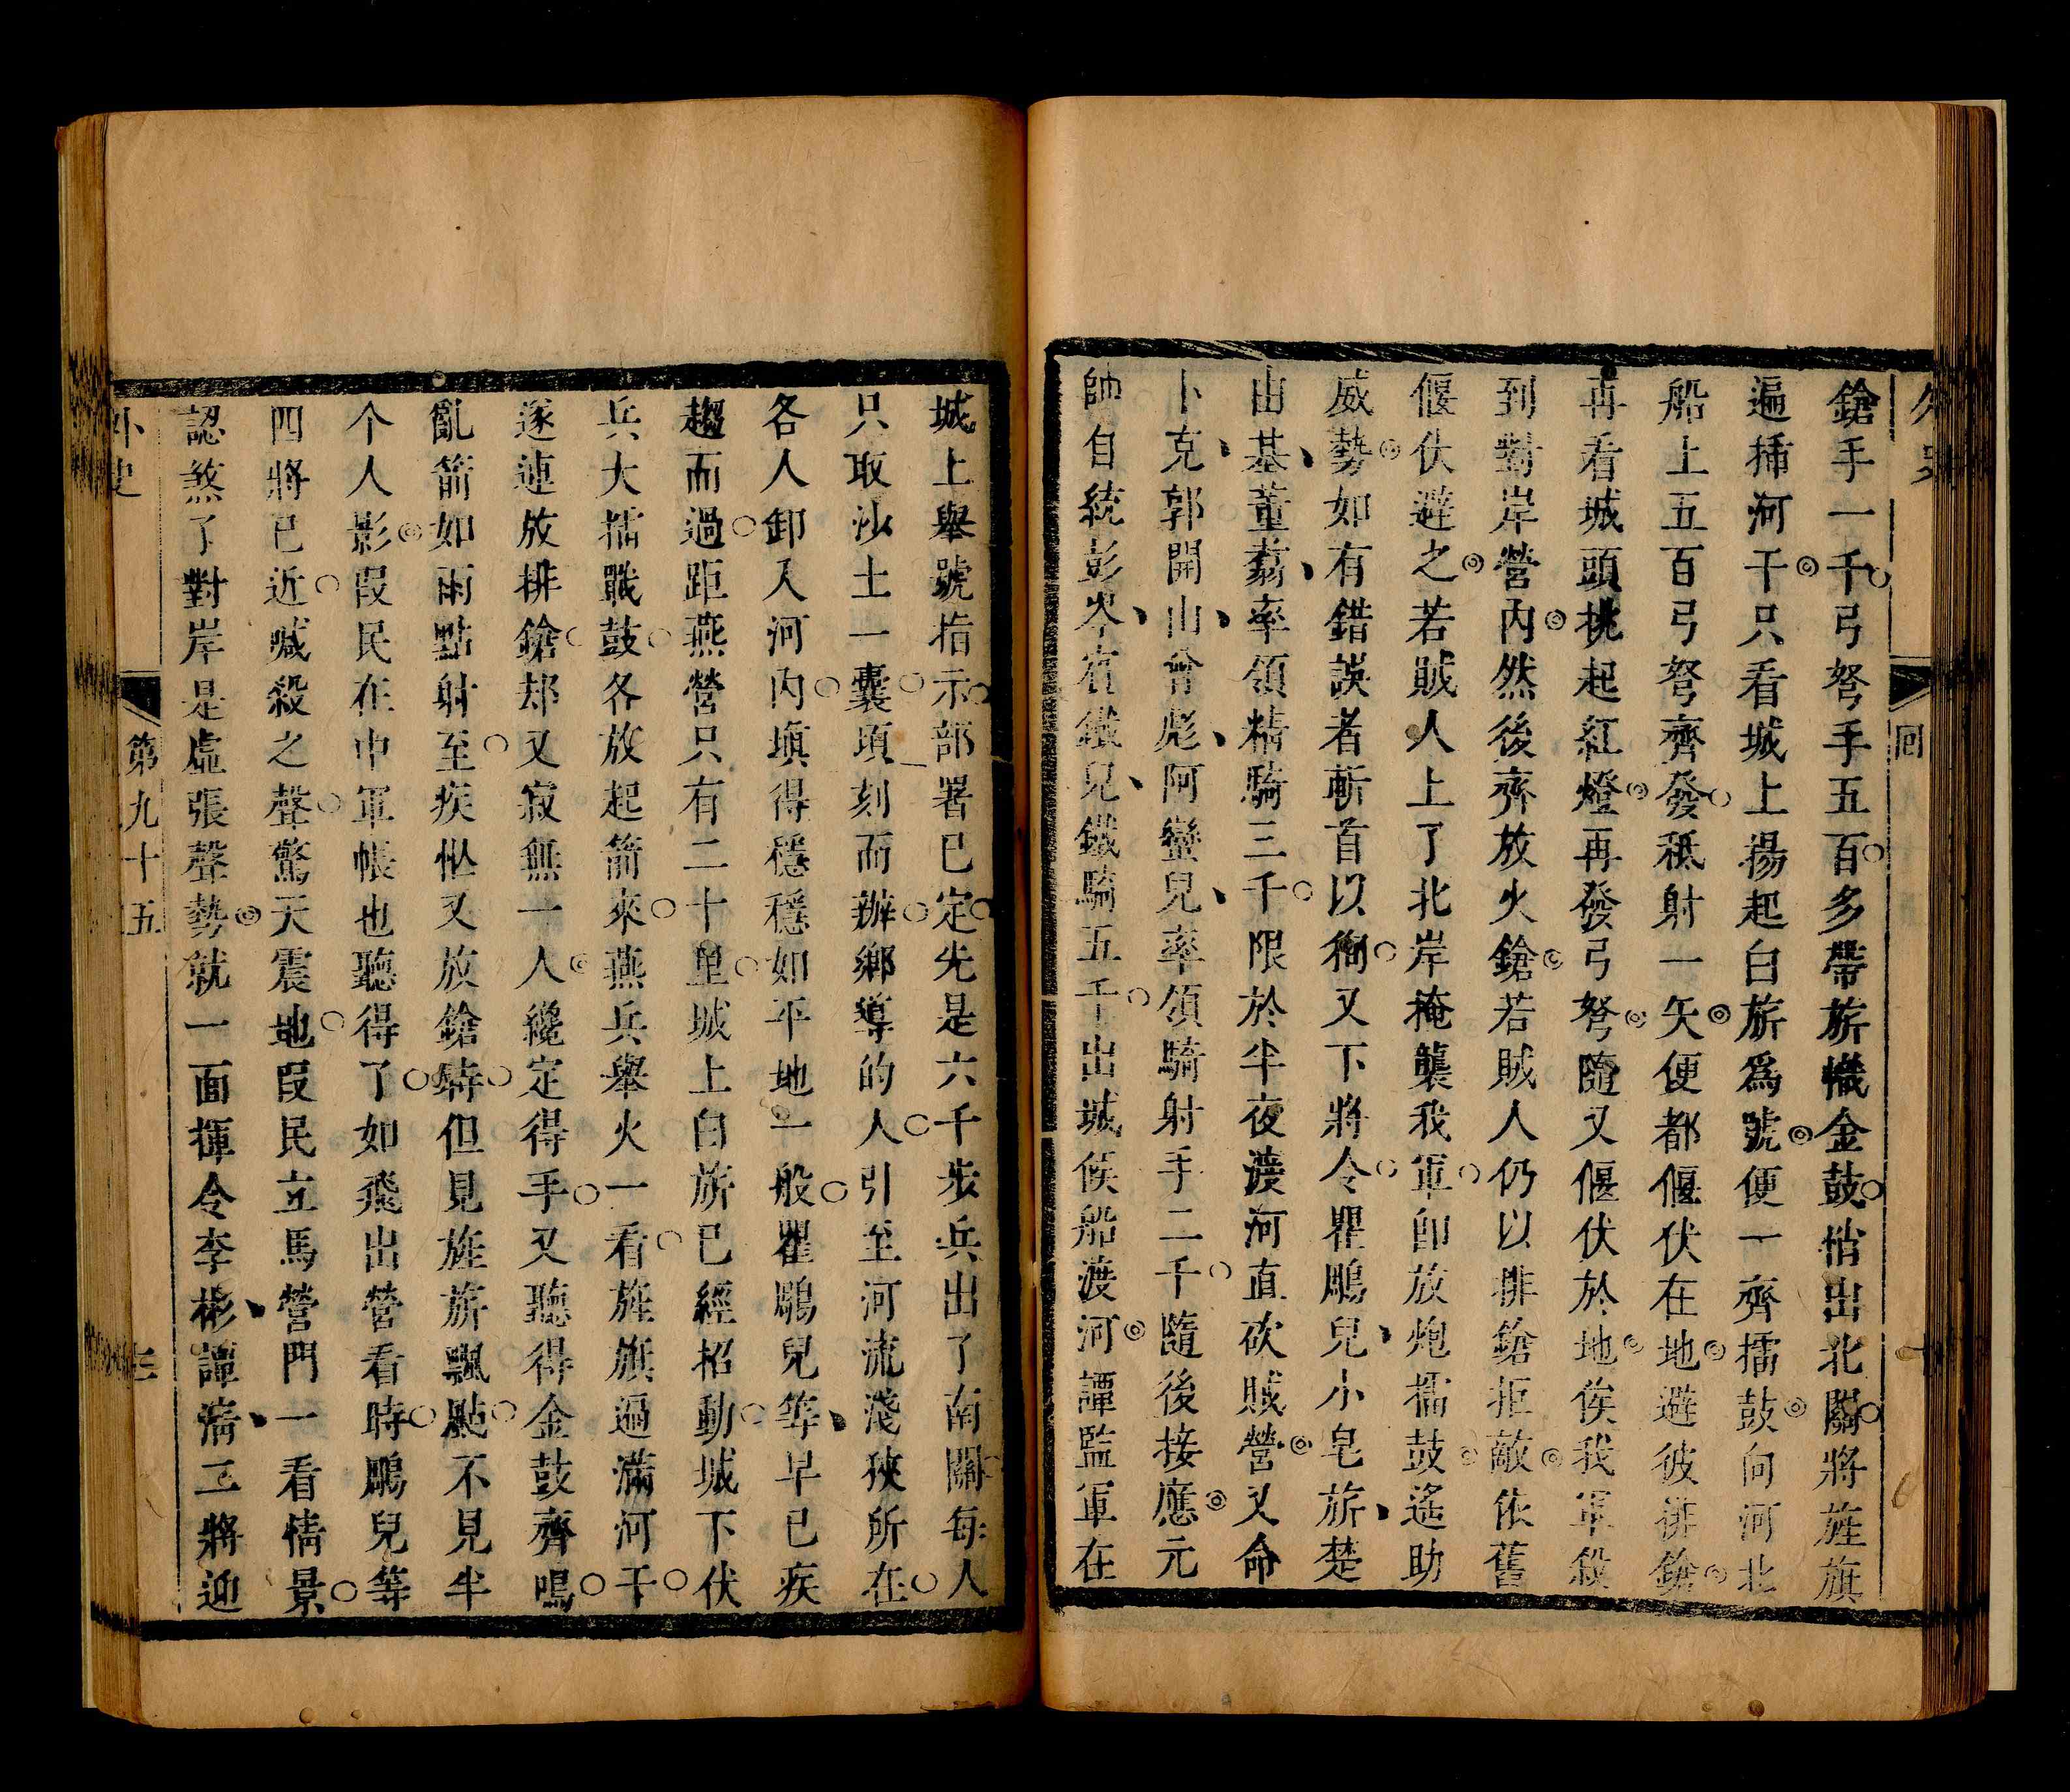 外史
回
十
鎗手一千弓弩手五百多帶旂幟金鼓悄出北關將旌旗
遍揷河干只看城上揚起白旂爲號便一齊擂鼓向河北
船上五百弓弩齊發秪射一矢便都偃伏在地避彼排鎗
再看城頭挑起紅燈再發弓弩隨又偃伏於地俟我軍殺
到對岸營內然後齊放火鎗若賊人仍以排鎗拒敵依舊
偃伏避之若賊人上了北岸掩襲我軍卽放炮擂鼓遙助
威勢如有錯誤者斬首以徇又下將令瞿鵰兒小皂旂楚
由基董翥率領精騎三千限於半夜渡河直砍賊營又命
卜克郭開山曾彪阿蠻兒率領騎射手二千隨後接應元
帥自統彭岑宥鐵兒鐵騎五千出城候船渡河譚監軍在
城上舉號指示部署已定先是六千步兵出了南關每人
只取沙土一囊頃刻而辦鄉導的人引至河流淺狹所在
各人卸入河內塡得穩穩如平地一般瞿鵰兒等早已疾
趨而過距燕營只有二十里城上白旂已經招動城下伏
兵大擂戰鼓各放起箭來燕兵舉火一看旌旗過滿河干
遂連放排鎗却又寂無一人纔定得手又聽得金鼓齊鳴
亂箭如雨點射至疾忙又放鎗時但見旌旂飄颭不見半
个人影段民在中軍帳也聽得了如飛出營看時鵰兒等
四將已近喊殺之聲驚天震地段民立馬營門一看情景
認煞了對岸是虛張聲勢就一面揮令李彬譚淸二將迎
外史
第九十五
三